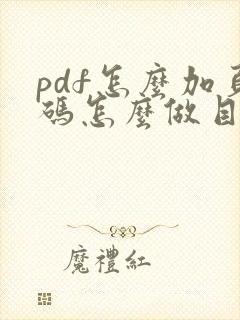 pdf怎麼加頁
碼怎麼做目
魔禮紅